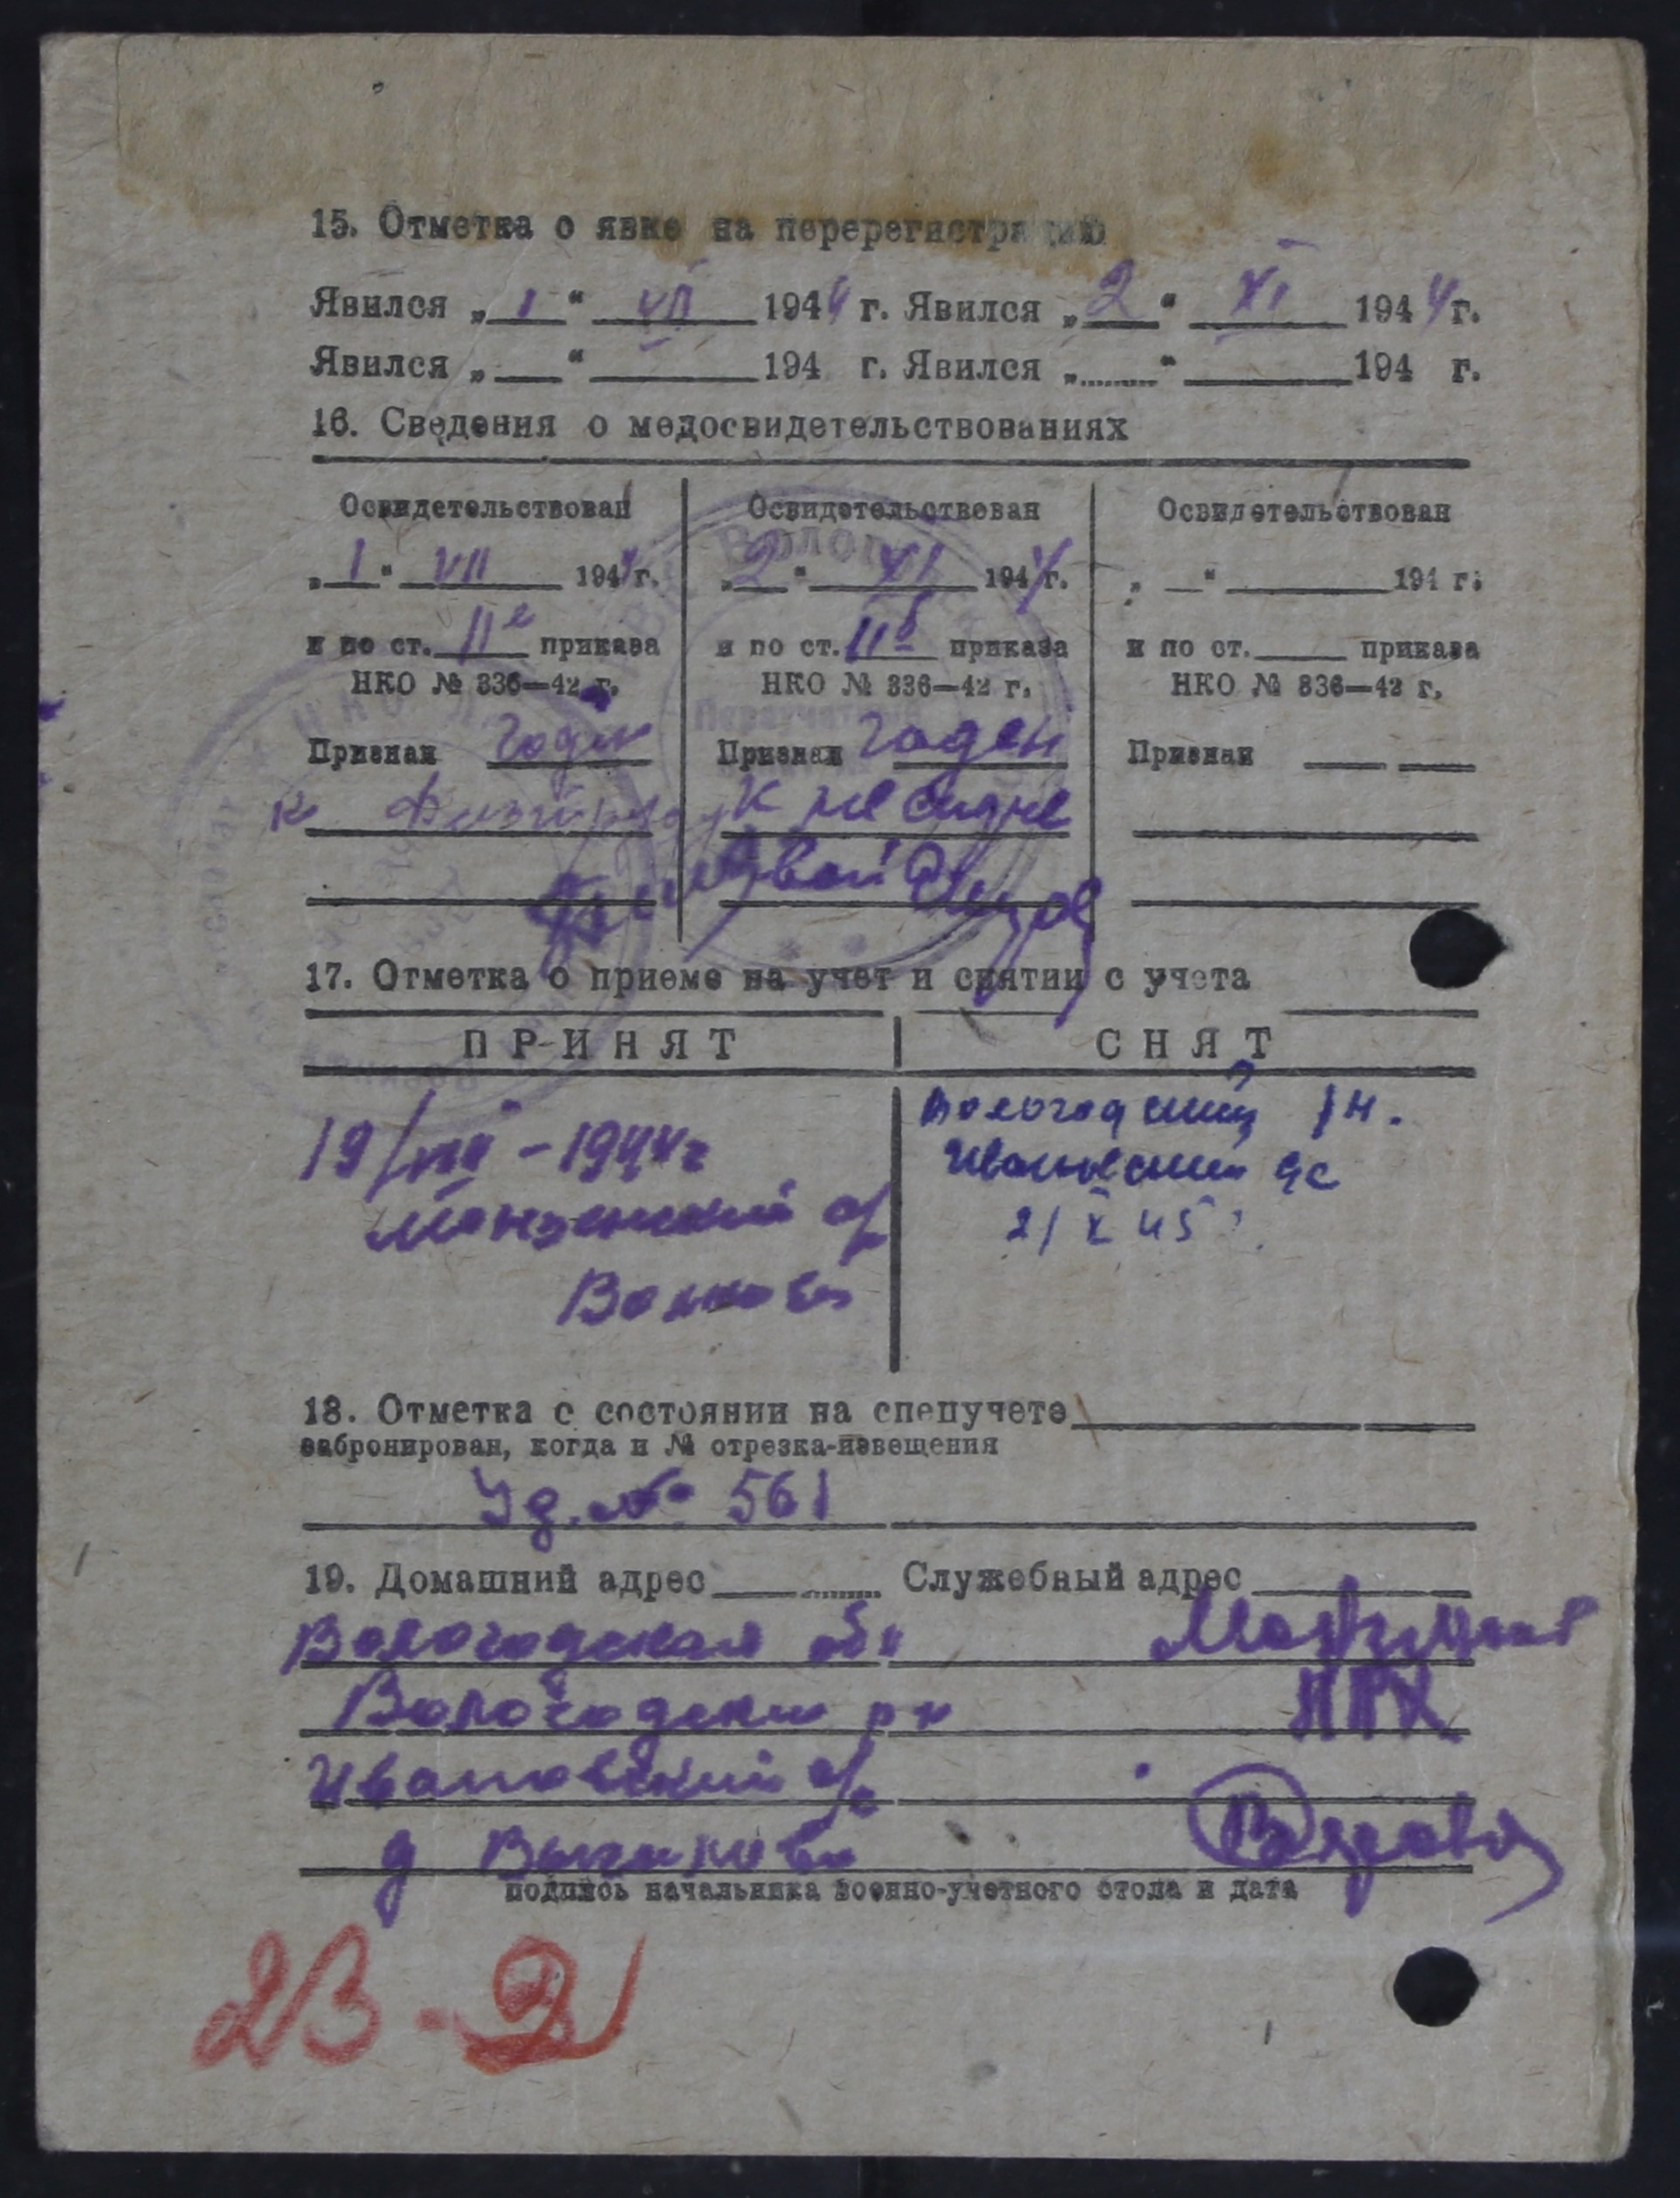 15. Отметка о явке на перерегистрацию
Явился „ 1 “ VII 1944 г. Явился „ 2 “ XI 1944 г.
Явился „ “ 194 г. Явился „ “ 194 г.
16. Сведения о медосвидетельствованиях
Освидетельствован Освидетельствован Освидетельствован
„ 1 “ VII 1944 г. „ 2 “ XI 1944 г. „ “ 194 г.
и по ст. II приказа и по ст. IIб приказа и по ст. приказа
НКО № 336—42 г. НКО № 336—42 г. НКО № 336—42 г.
Признан годен Признан годен Признан
к физтруду к не
17. Отметка о приеме на учет и снятии с учета
ПРИНЯТ СНЯТ
19/VIII - 1944 г Вологодский рн.
Ивановский с/с
21 X 45 г.
с/с
18. Отметка о состоянии на спецучете
забронирован, когда и № отрезка-извещения
Уд. № 561
19. Домашний адрес Служебный адрес
Вологодская обл
Вологодский рн
Ивановский с/с
д
подпись начальника военно-учетного стола и дата
23-2